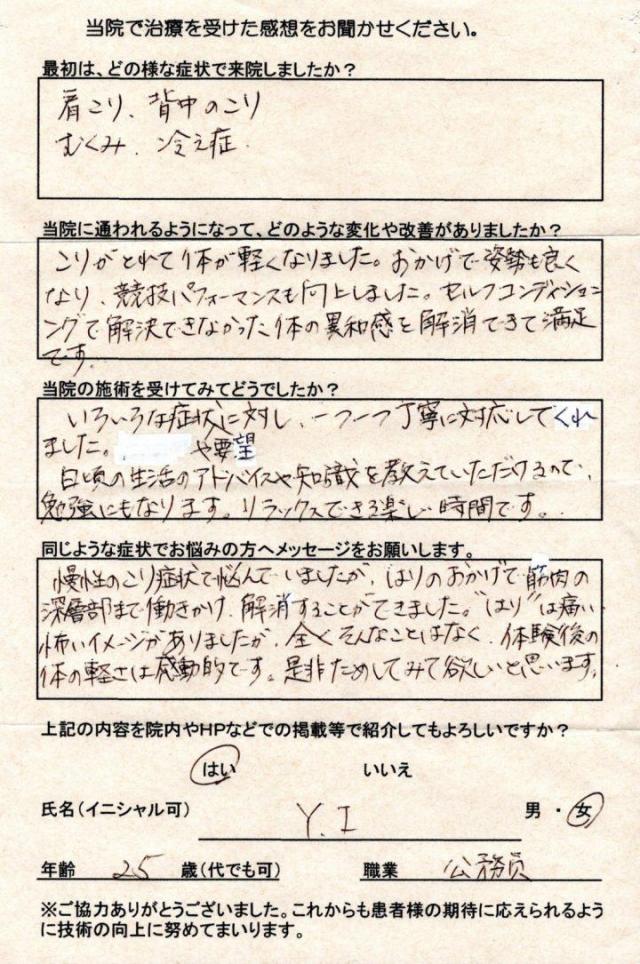 当院で治療を受けた感想をお聞かせください。
最初は、どの様な症状で来院しましたか？
肩こり、背中のこり
むくみ、冷え症
当院に通われるようになって、どのような変化や改善がありましたか？
こりがとれて体が軽くなりました。おかげで姿勢も良く
なり、競技パフォーマンスも向上しました。セルフコンディショニ
ングで解決できなかった体の異和感を解消できて満足
です。
当院の施術を受けてみてどうでしたか？
いろいろな症状に対し、一つ一つ丁寧に対応してくれ
ました。 や要望
日頃の生活のアドバイスや知識を教えていただけるので、
勉強にもなります。リラックスできる楽しい時間です。
同じような症状でお悩みの方へメッセージをお願いします。
慢性のこり症状で悩んでいましたが、はりのおかげで筋肉の
深層部まで働きかけ、解消することができました。"はり"は痛い
怖いイメージがありましたが、全くそんなことはなく、体験後の
体の軽さは感動的です。是非ためしてみて欲しいと思います。
上記の内容を院内やHPなどでの掲載等で紹介してもよろしいですか？
はい いいえ
氏名（イニシャル可） Y.I 男・女
年齢 25 歳（代でも可） 職業 公務員
※ご協力ありがとうございました。これからも患者様の期待に応えられるよう
に技術の向上に努めてまいります。